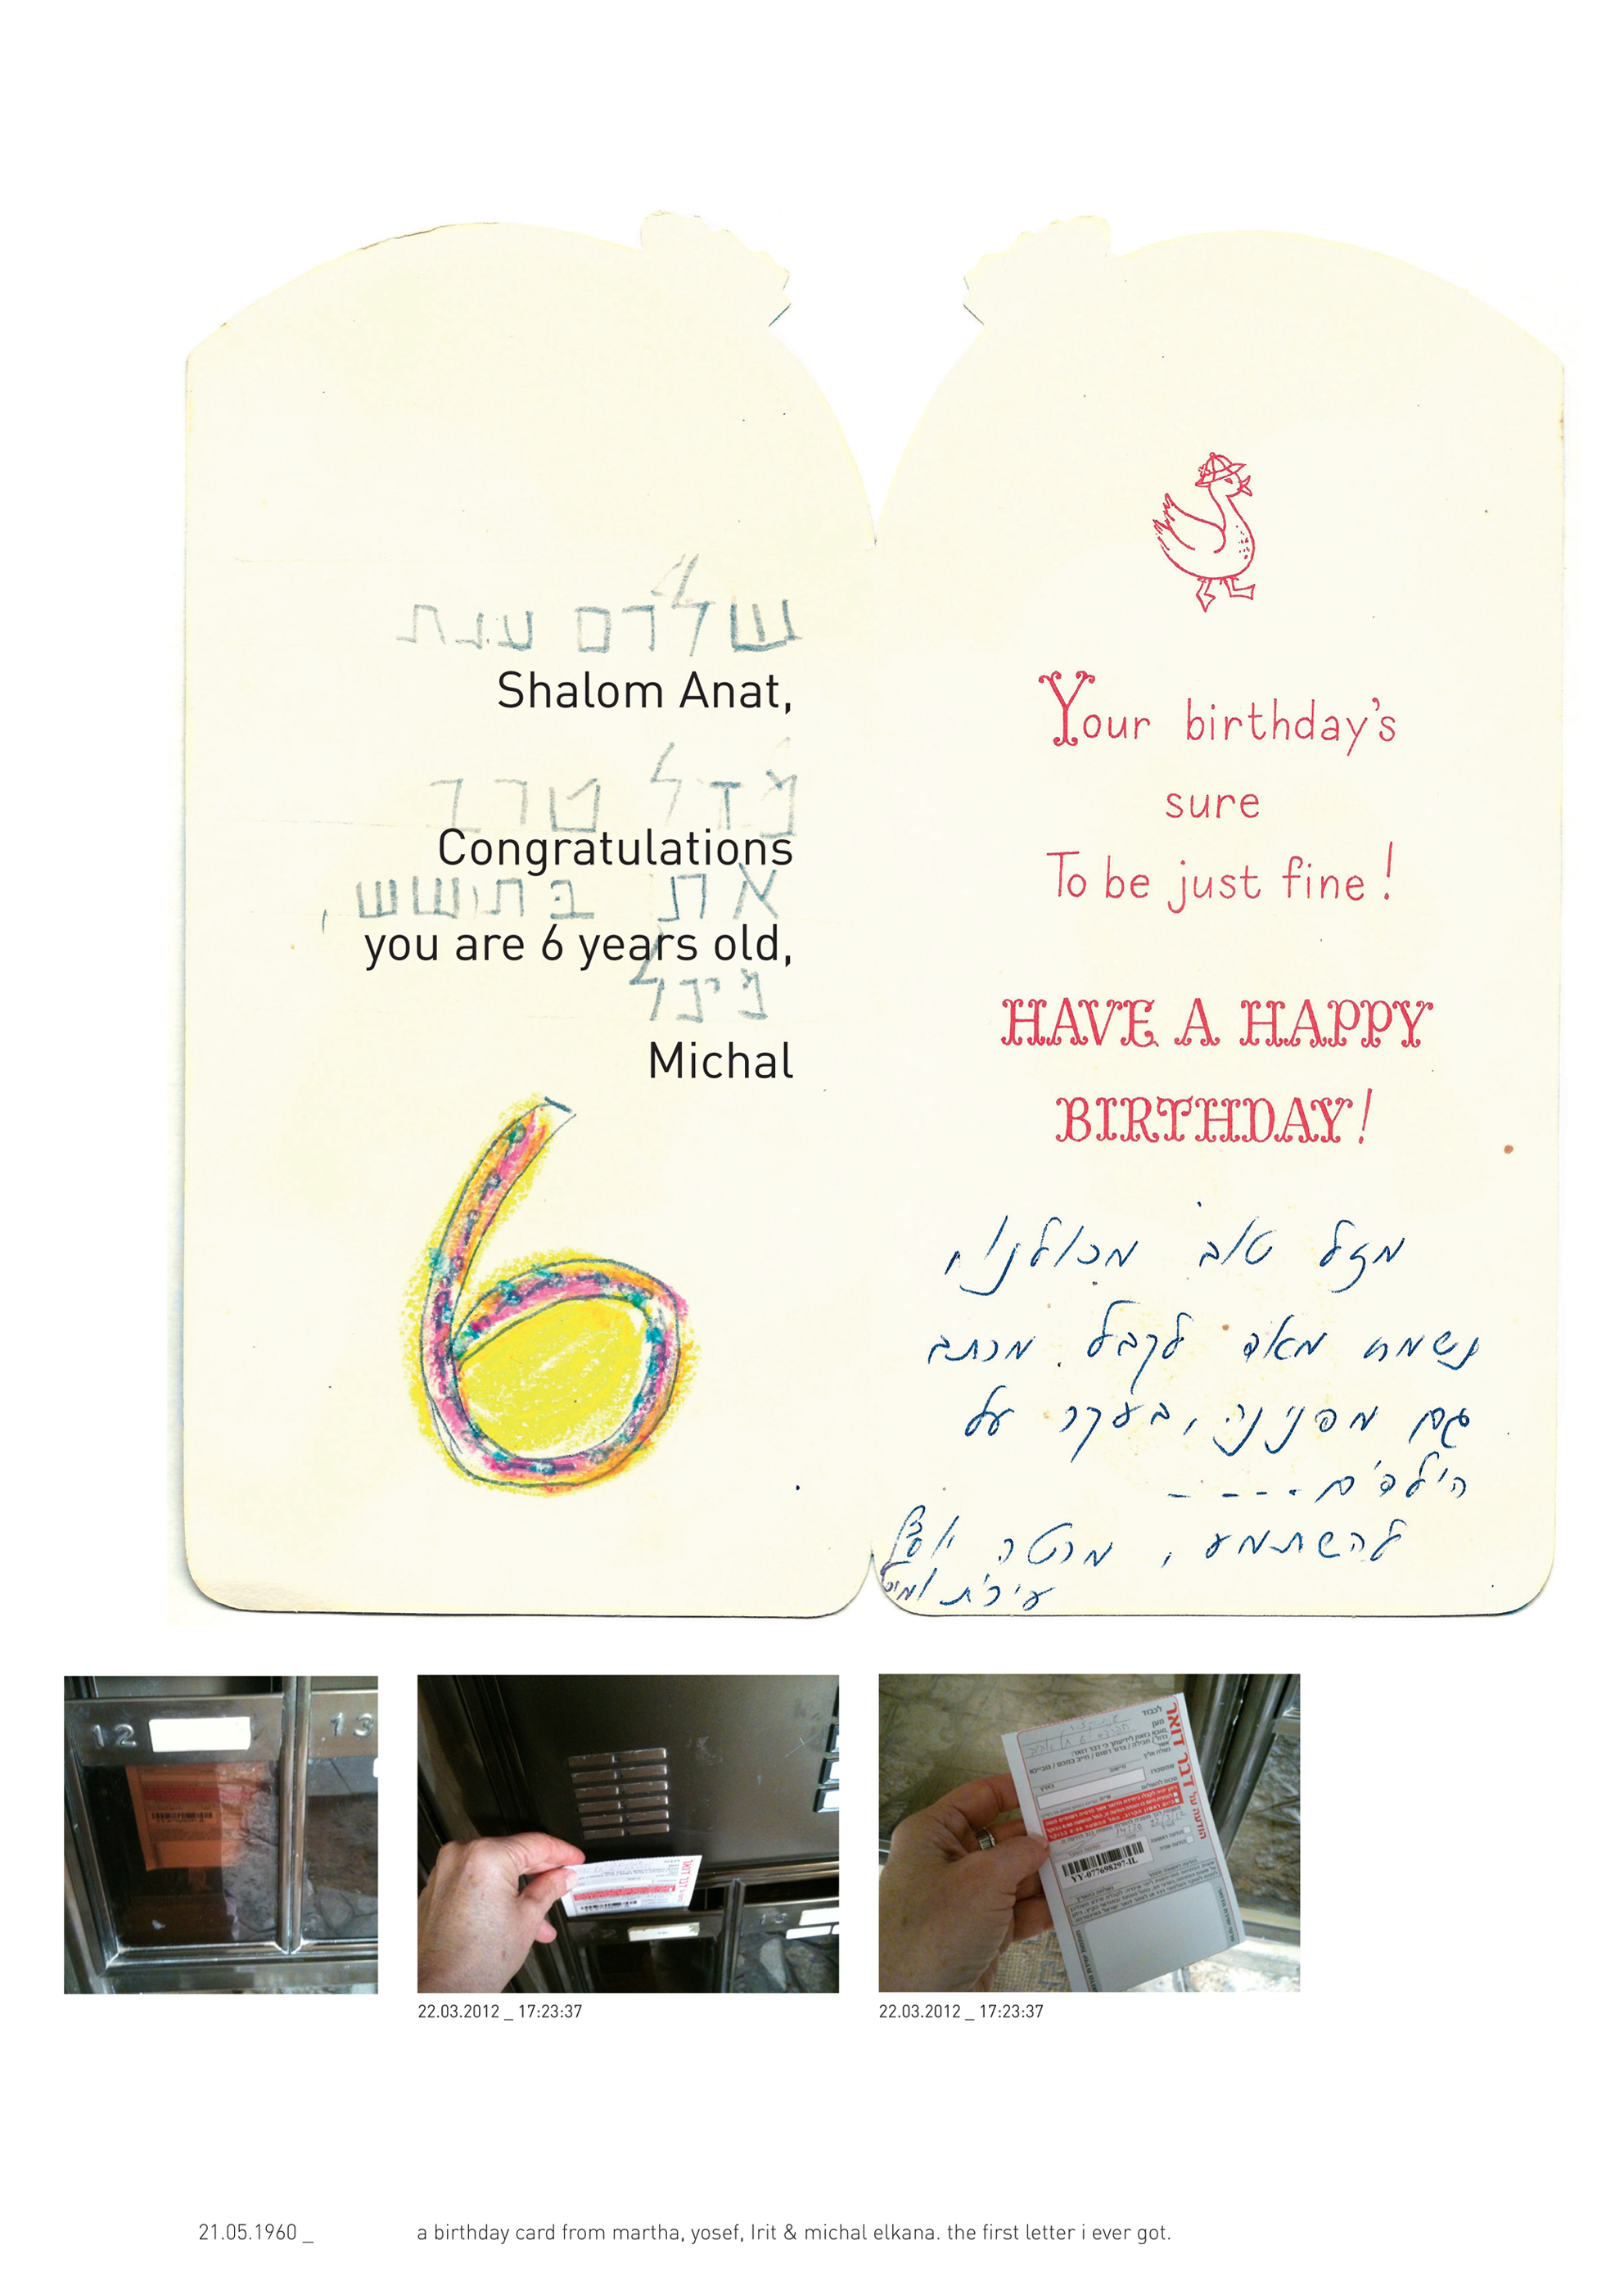 שלום ענת
Shalom Anat,
מזל טוב
Congratulations
את בת שש,
you are 6 years old,
מיכל
Michal
6
Your birthday's
sure
To be just fine!
HAVE A HAPPY
BIRTHDAY!
מזל טוב מכולנו,
נשמח מאד לקבל מכתב
גם מפנינה, בעקר על
הילדים . - - -
להשתמע, מרטה יוסף
עירית ומיכל
12
13
דבר דואר
לכבוד
מען
YY-077698297-IL
22.03.2012 _ 17:23:37
22.03.2012 _ 17:23:37
21.05.1960 _ a birthday card from martha, yosef, Irit & michal elkana. the first letter i ever got.